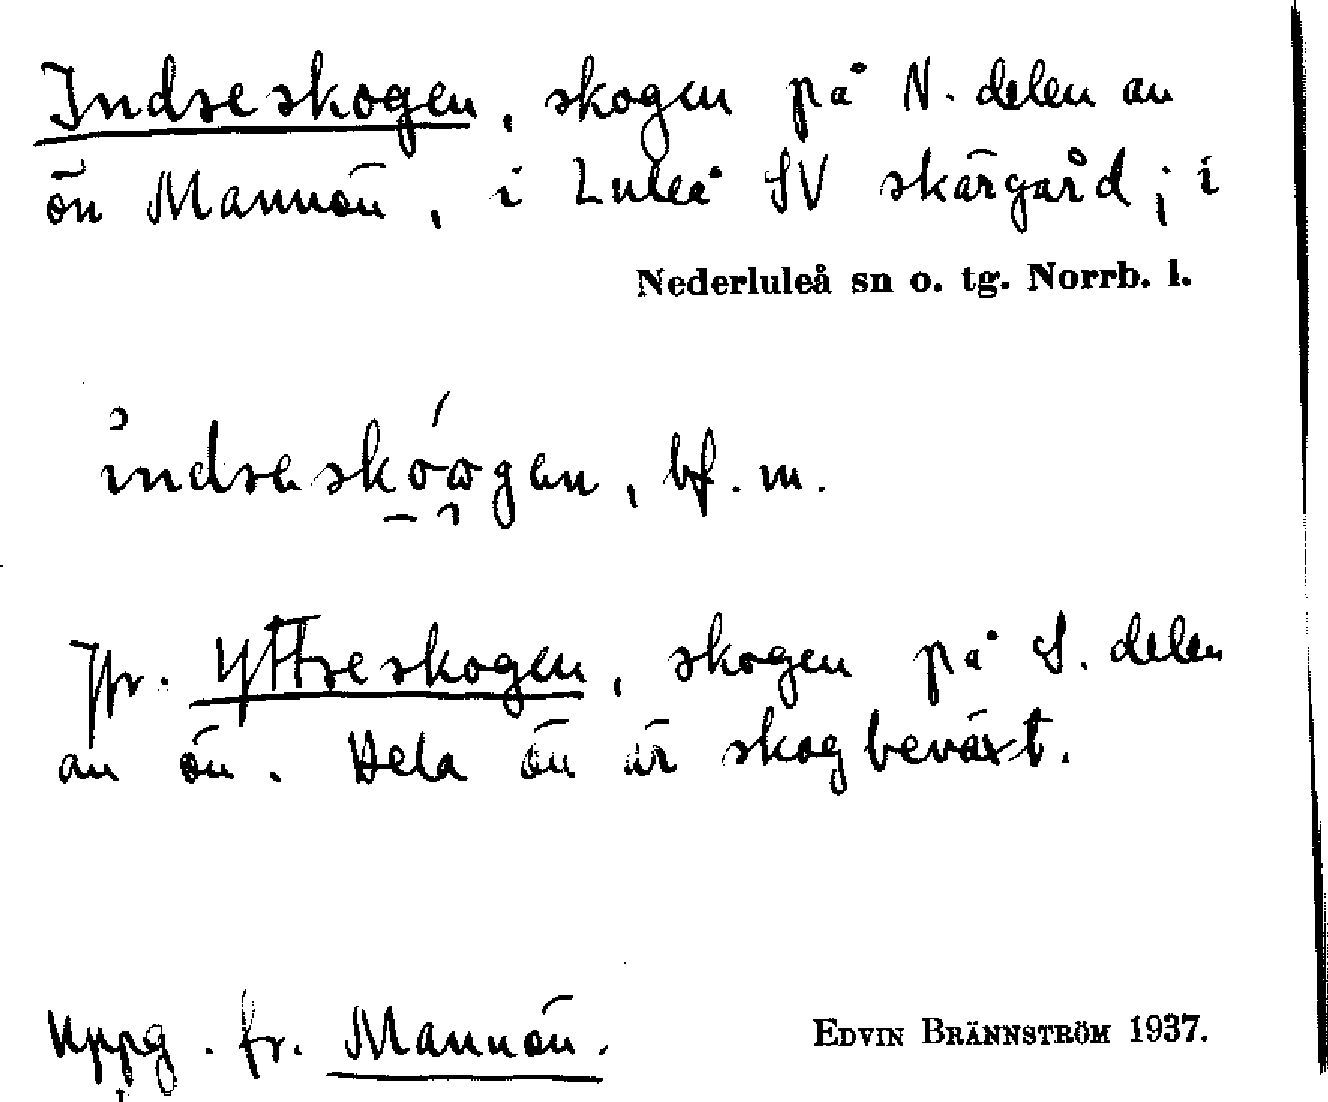 Indreskogen, skogen på N. delen av
ön Mannön, i Luleå SV skärgård; i
Nederluleå sn o. tg. Norrb. l.
bf. m.
Jfr. Yttreskogen, skogen på S. delen
av ön. Hela ön är skogbeväxt.
Uppg. fr. Mannön.
EDVIN BRÄNNSTRÖM 1937.